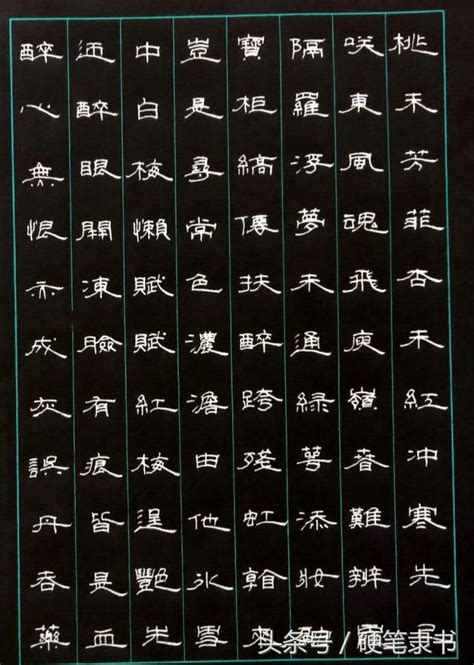 桃未芳菲杏未紅冲寒先
咲東風魂飛庾嶺春難辨
隔羅浮夢未通綠萼添妝
寶柜縞僊扶醉跨殘虹
豈是尋常色濃澹由他氷雪
中白梅懶賦賦紅梅逞艷先
迎醉眼開凍臉有痕皆是血
醉心無恨亦成灰誤丹吞藥
头条号 / 硬笔隶书